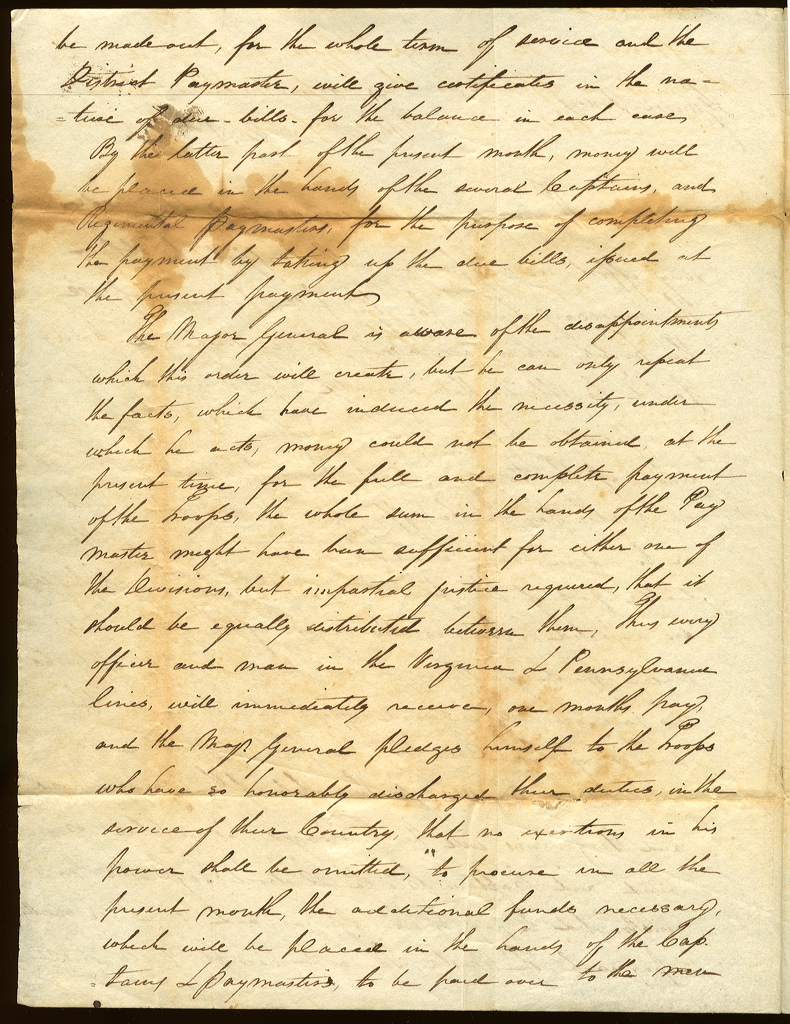 be made out, for the whole term of service and the
District Paymaster, will give certificates in the na-
-ture of due-bills- for the balance in each case,
By the latter part of the present month, money will
be placed in the hands of the several Captains, and
Regimental Paymasters, for the purpose of completing
the payment by taking up the due bills, issued at
the present payment,
The Major General is aware of the disappointments
which this order will create, but he can only repeat
the facts, which have induced the necessity, under
which he acts, money could not be obtained, at the
present time, for the full and complete payment
of the Troops, the whole sum in the hands of the Pay
master might have been sufficient for either one of
the Divisions, but impartial justice required, that it
should be equally distributed between them, Thus every
officer and man in the Virginia & Pennsylvania
lines, will immediately receive, one months pay,
and the Majr General pledges himself to the Troops
who have so honorably discharged their duties, in the
service of their Country, that no exertions in his
power shall be omitted, "to procure in all the
present month, the additional funds necessary,
which will be placed in the hands of the Cap
-tains & Paymasters, to be paid over to the men